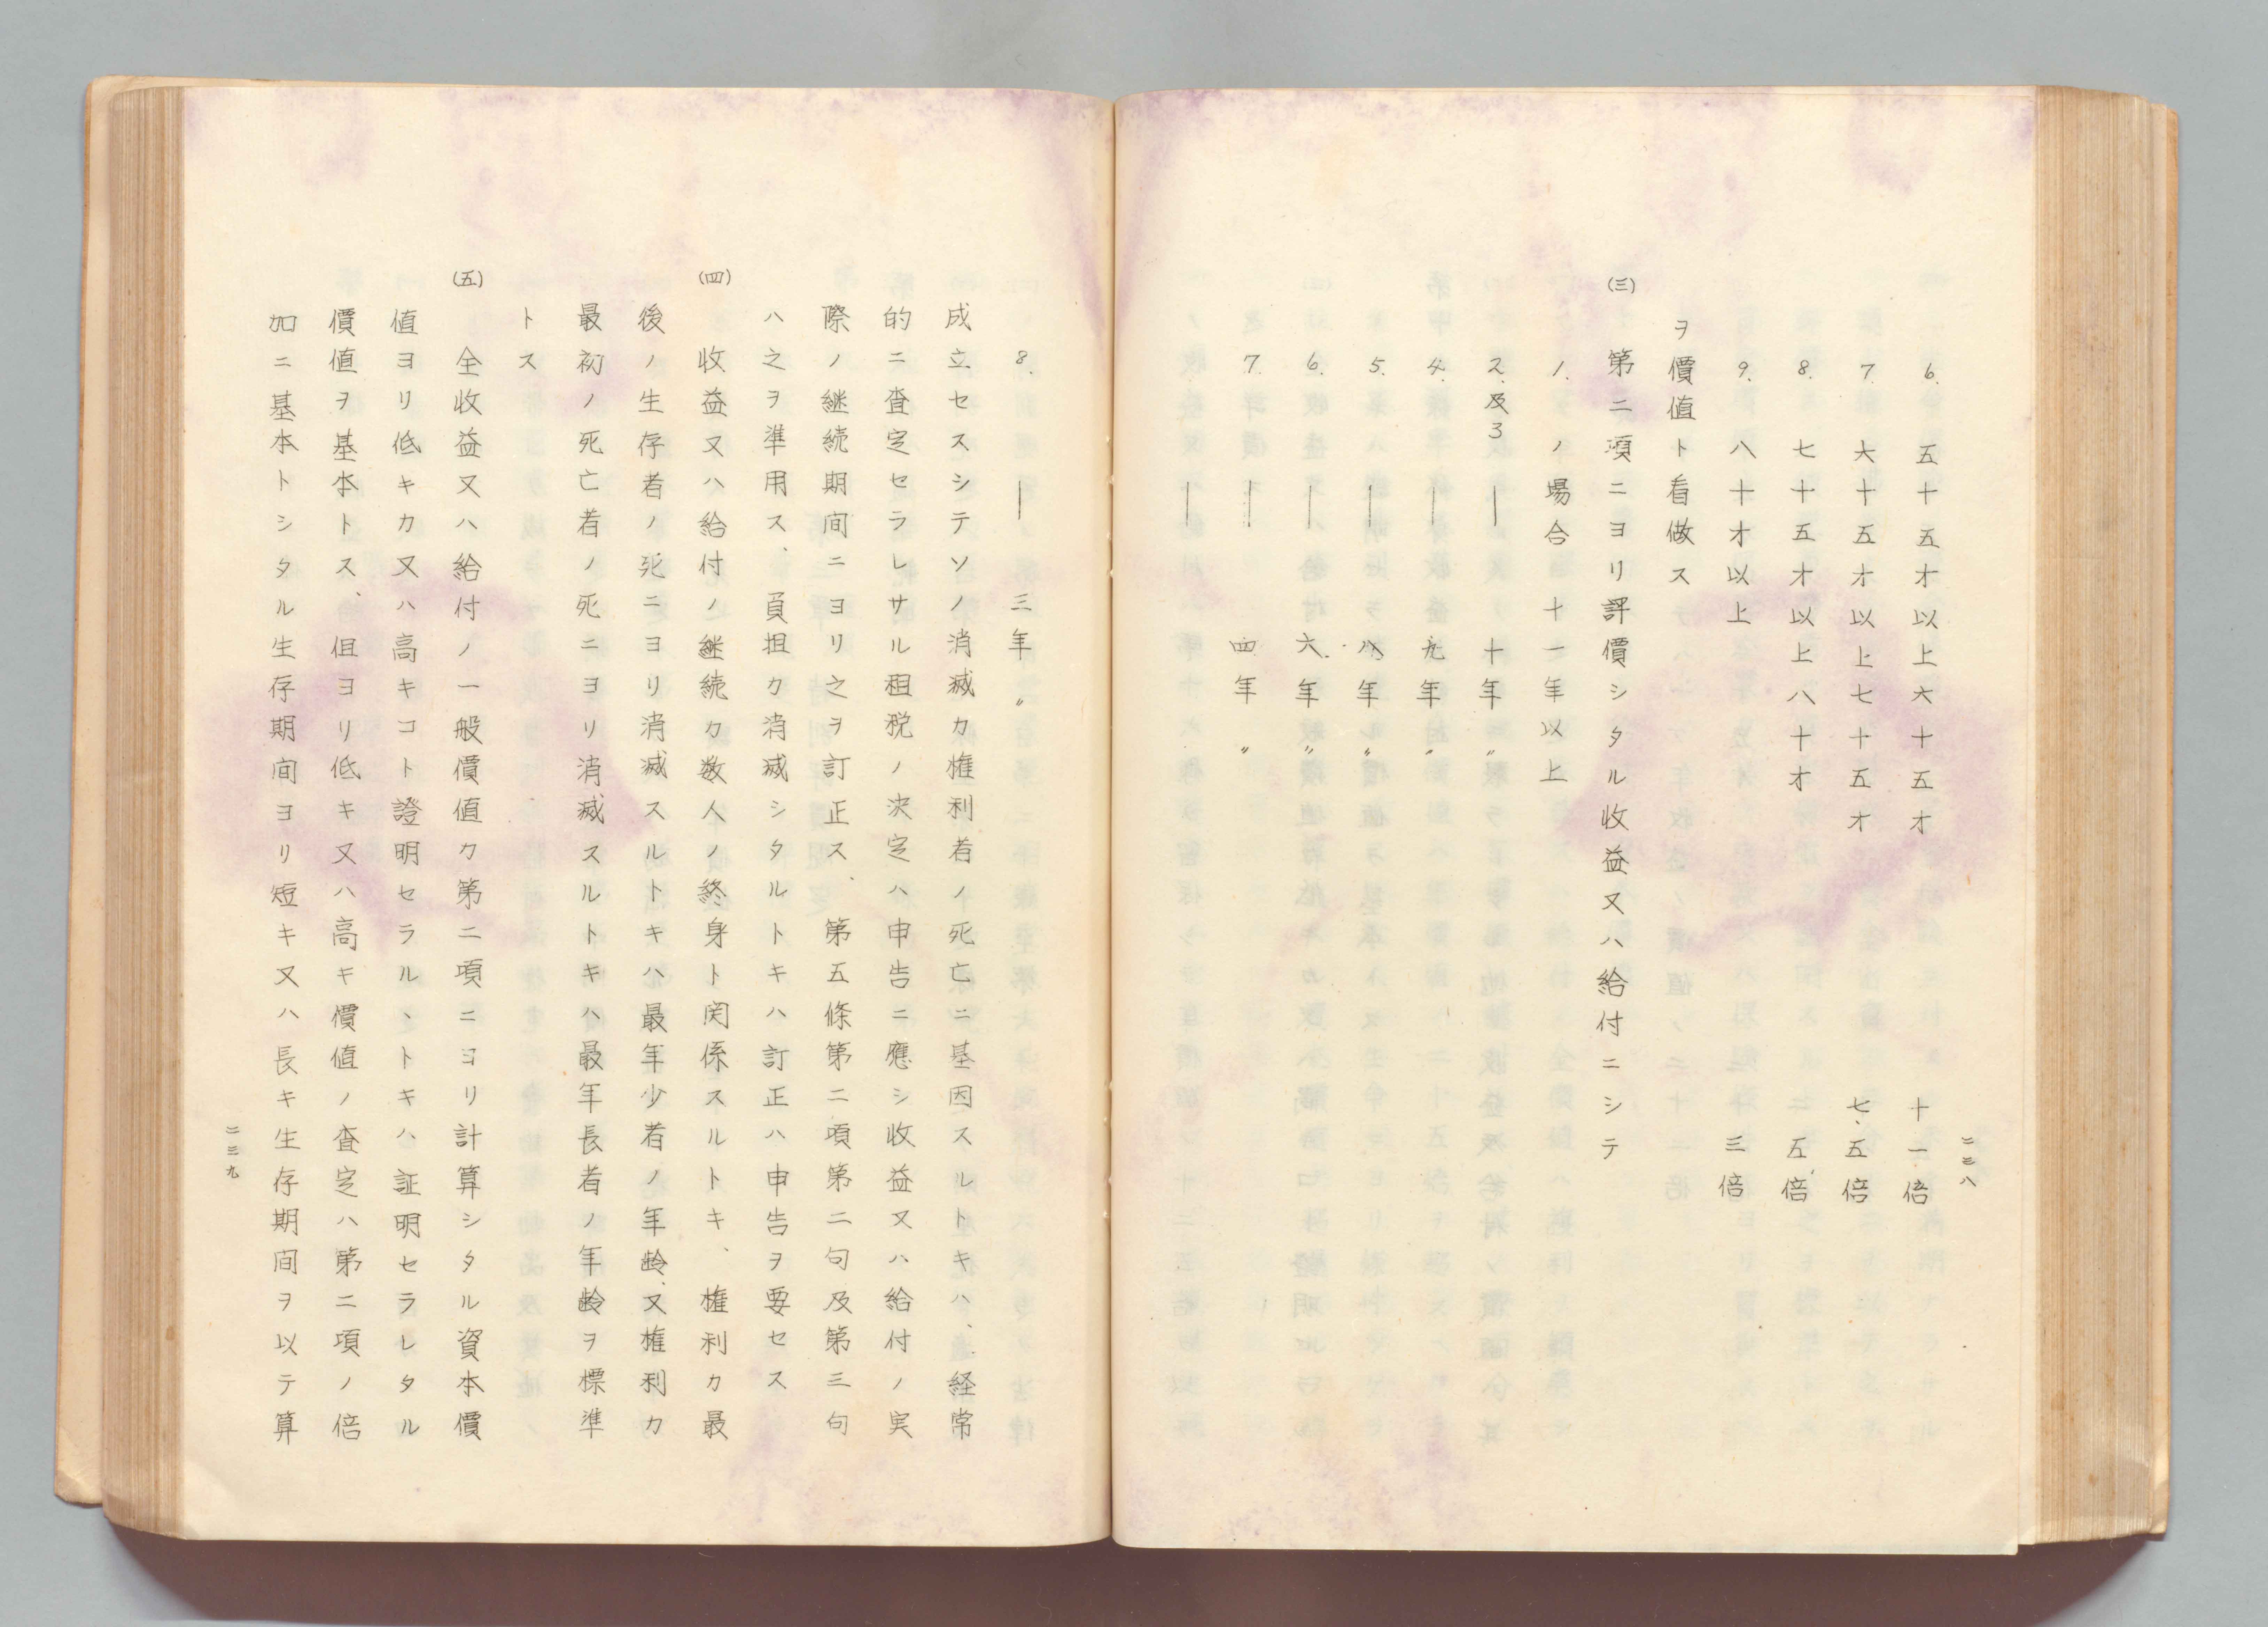 二三八
6. 五十五才以上六十五才 十一倍
7. 六十五才以上七十五才 七、五倍
8. 七十五才以上八十才 五倍
9. 八十才以上 三倍
ヲ價値ト看做ス
(三) 第二項ニヨリ評價シタル收益又ハ給付ニシテ
1. ノ場合十一年以上
2.及3 ― 十年〃
4. ― 九年〃
5. ― 八年〃
6. ― 六年〃
7. ― 四年〃
8. ― 三年〃
成立セスシテソノ消滅カ権利者ノ死亡ニ基因スルトキハ、経常
的ニ査定セラレサル租税ノ決定ハ申告ニ應シ收益又ハ給付ノ実
際ノ継続期间ニヨリ之ヲ訂正ス、第五條第二項第二句及第三句
ハ之ヲ準用ス、負担カ消滅シタルトキハ訂正ハ申告ヲ要セス
(四) 收益又ハ給付ノ継続カ数人ノ終身ト関係スルトキ、権利カ最
後ノ生存者ノ死ニヨリ消滅スルトキハ最年少者ノ年齢、又権利カ
最初ノ死亡者ノ死ニヨリ消滅スルトキハ最年長者ノ年齢ヲ標準
トス
(五) 全收益又ハ給付ノ一般價値カ第二項ニヨリ計算シタル資本價
値ヨリ低キカ又ハ高キコト證明セラルヽトキハ証明セラレタル
價値ヲ基本トス、但ヨリ低キ又ハ高キ價値ノ査定ハ第二項ノ倍
加ニ基本トシタル生存期间ヨリ短キ又ハ長キ生存期间ヲ以テ算
二三九